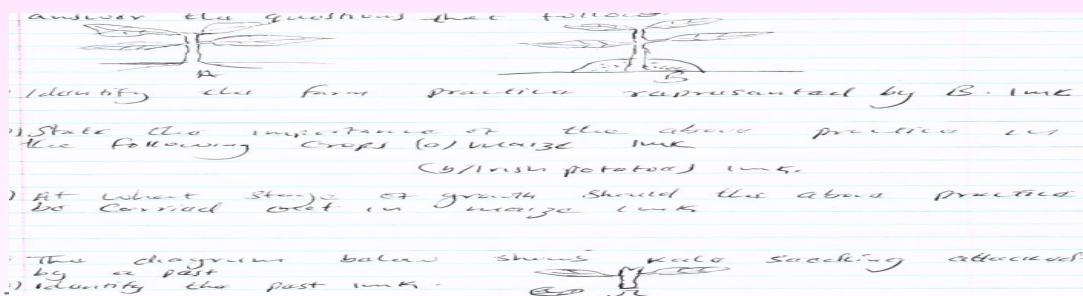 answer the questions that follow.
A B
Identify the farm practice represented by B. 1mk
State the importance of the above practice in
the following crops (a) maize 1mk
(b) Irish potatoes 1mk.
At what stage of growth should the above practice
be carried out in maize 1mk
The diagram below shows kale seedling attacked
by a pest
identify the pest 1mk.